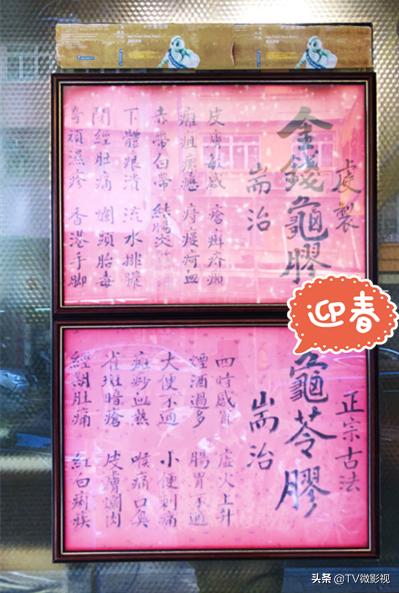 虔製
金錢龜膠
耑治
皮膚敏感 瘡癬疥癩
癰疽 痔 疴血
赤帶白帶 結腸炎
下體痕潰 流水排膿
閉經肚痛 爛頭胎毒
奇頑濕疹 香港手脚
迎春
正宗古法
龜苓膠
耑治
四時感冒 虛火上升
煙酒過多 腸胃不適
大便不通 小便刺痛
痧血熱 喉痛口臭
雀斑暗瘡 皮膚 肉
經期肚痛 紅白痢疾
头条 @TV微影视